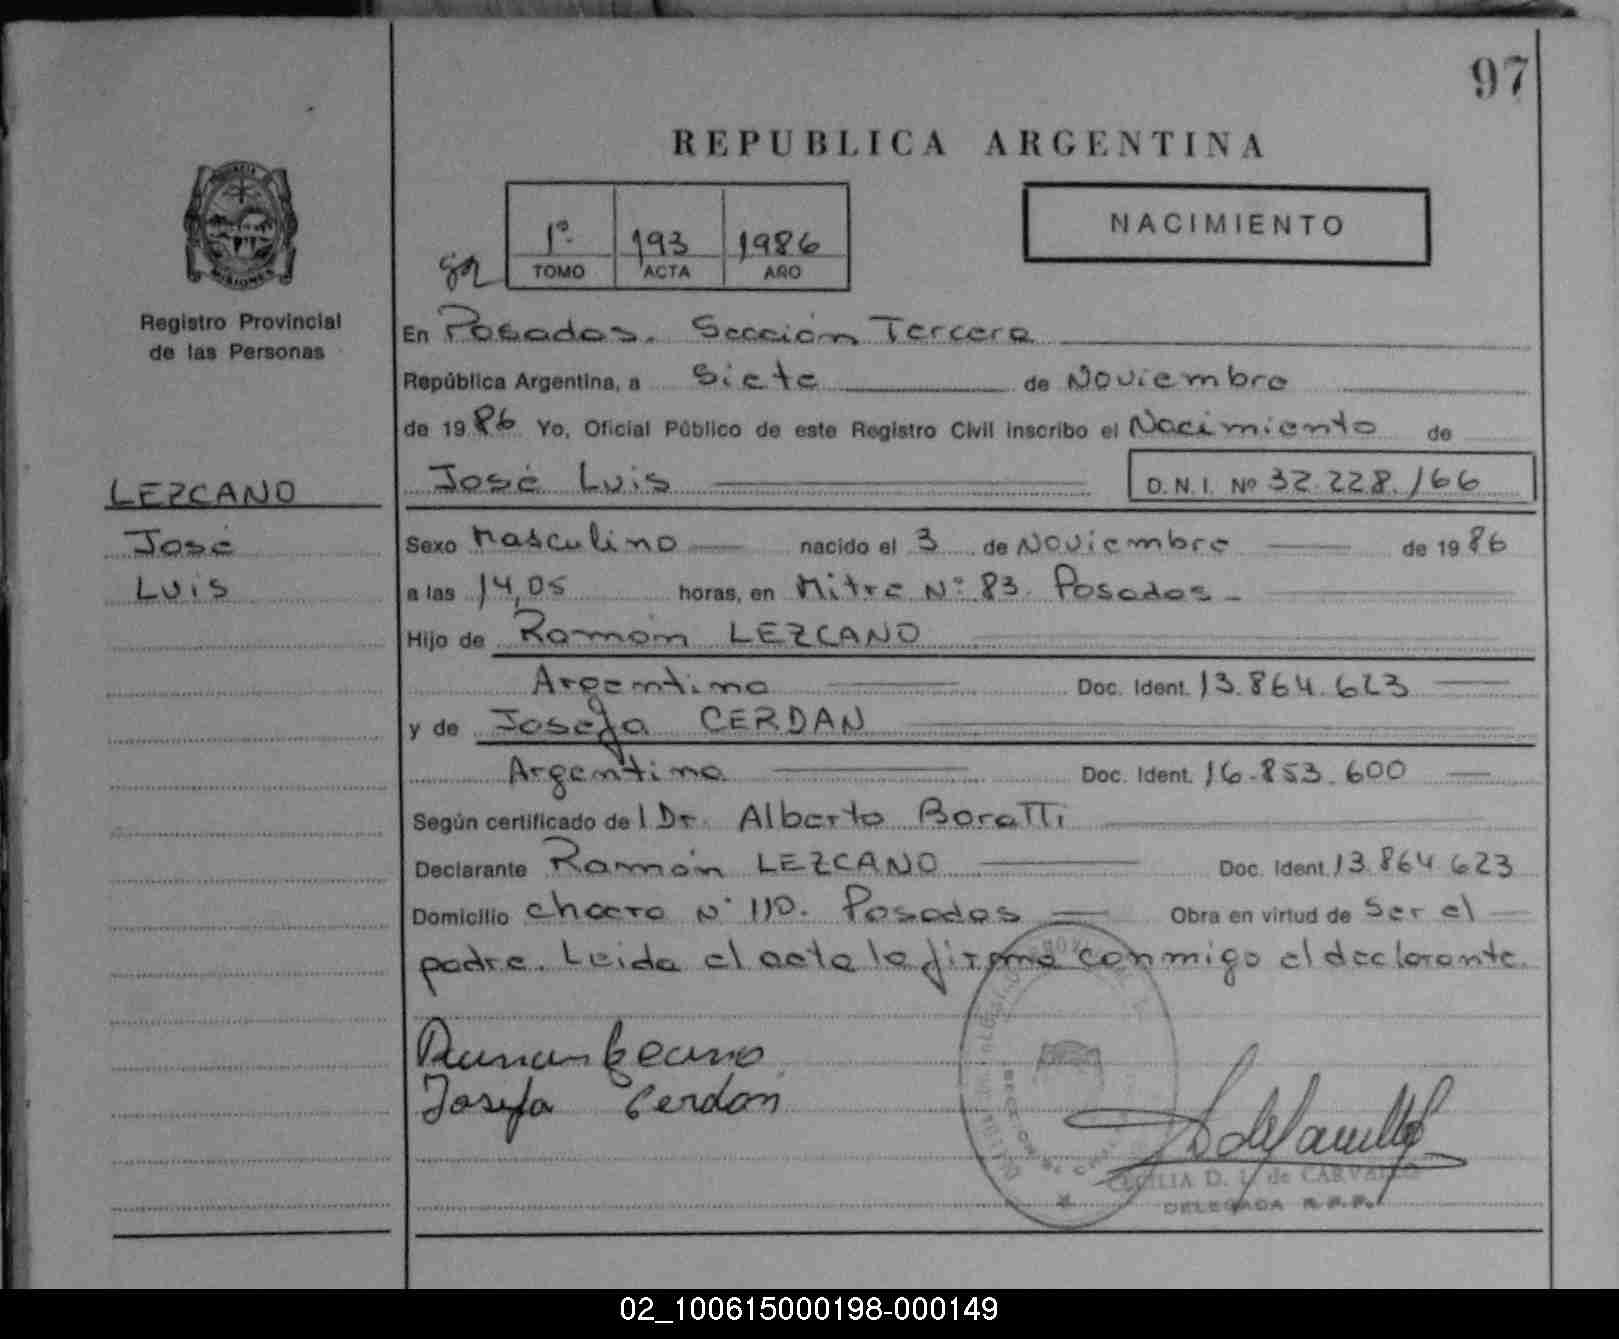 97
REPUBLICA ARGENTINA
1º 193 1986
TOMO ACTA AÑO
NACIMIENTO
MISIONES
Registro Provincial
de las Personas
En Posadas. Sección Tercera
República Argentina, a Siete de Noviembre
de 1986 Yo, Oficial Público de este Registro Civil inscribo el Nacimiento de
José Luis D.N.I. Nº 32.228.166
LEZCANO
José
Luis
Sexo Masculino nacido el 3 de Noviembre de 1986
a las 14,05 horas, en Mitre Nº 83. Posadas -
Hijo de Ramón LEZCANO
Argentino Doc. Ident. 13.864.623
y de Josefa CERDAN
Argentina Doc. Ident. 16.853.600
Según certificado del Dr. Alberto Boratti
Declarante Ramón LEZCANO Doc. Ident. 13.864.623
Domicilio Chacra Nº 110. Posadas Obra en virtud de Ser el
padre. Leida el acta la firma conmigo el declarante.
Josefa Cerdan
CECILIA D. L. de CARVALHO
DELEGADA R.P.P.
02_100615000198-000149